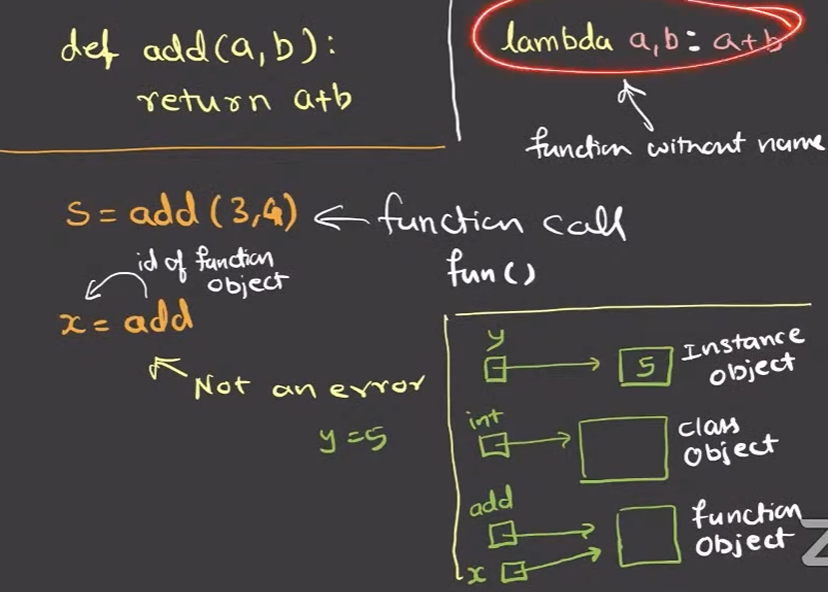 def add(a,b):
return a+b
lambda a,b: a+b
function without name
s = add(3,4) ← function call
fun()
id of function
object
x = add
Not an error
y = 5
y
5
Instance
object
int
class
object
add
function
object
x
Z